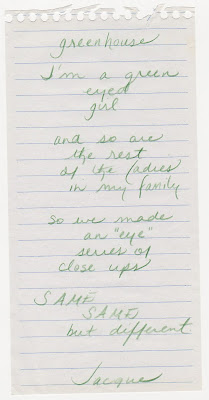 greenhouse
I'm a green
eyed
girl
and so are
the rest
of the ladies
in my family
so we made
an "eye"
series of
close ups
SAME
SAME
but different
Jacque